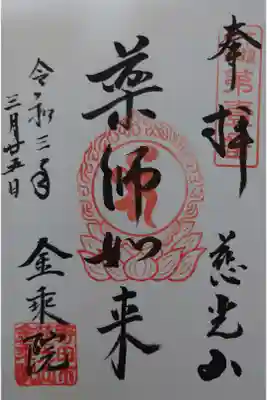 奉拝
慈光山
薬師如来
令和三年
三月廿五日
金乘院